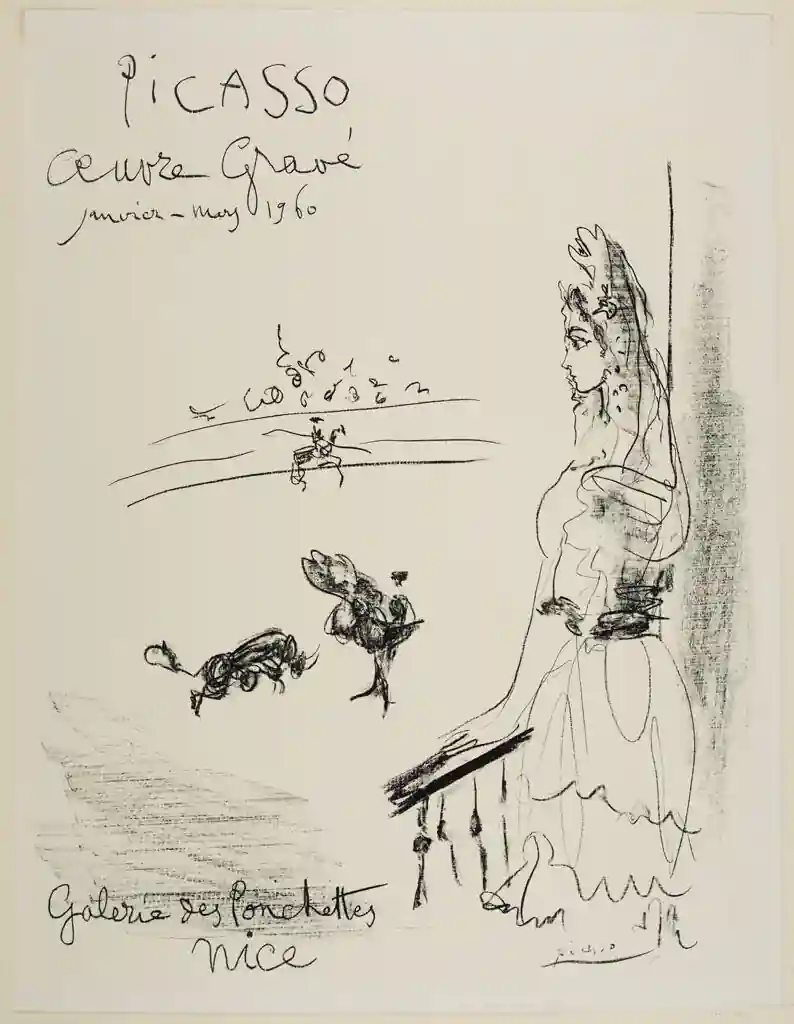 PiCASSO
Œuvre Gravé
janvier - mars 1960
Galerie des Ponchettes
Nice
picasso